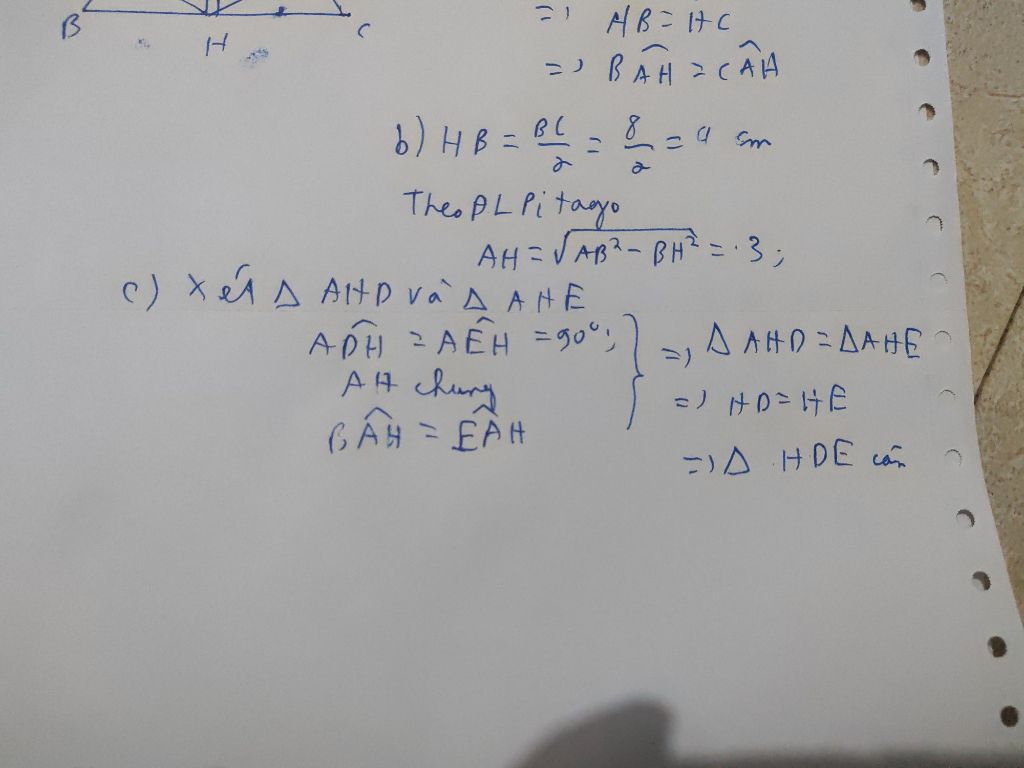 B H C
=> HB = HC
=> BÂH = CÂH
b) HB = BC/2 = 8/2 = 4 cm
Theo ĐL Pitago
AH = √AB² - BH² = 3;
c) Xét Δ AHD và Δ AHE
AD̂H = AÊH = 90°;
AH chung
BÂH = EÂH
=> Δ AHD = ΔAHE
=> HD = HE
=> Δ HDE cân